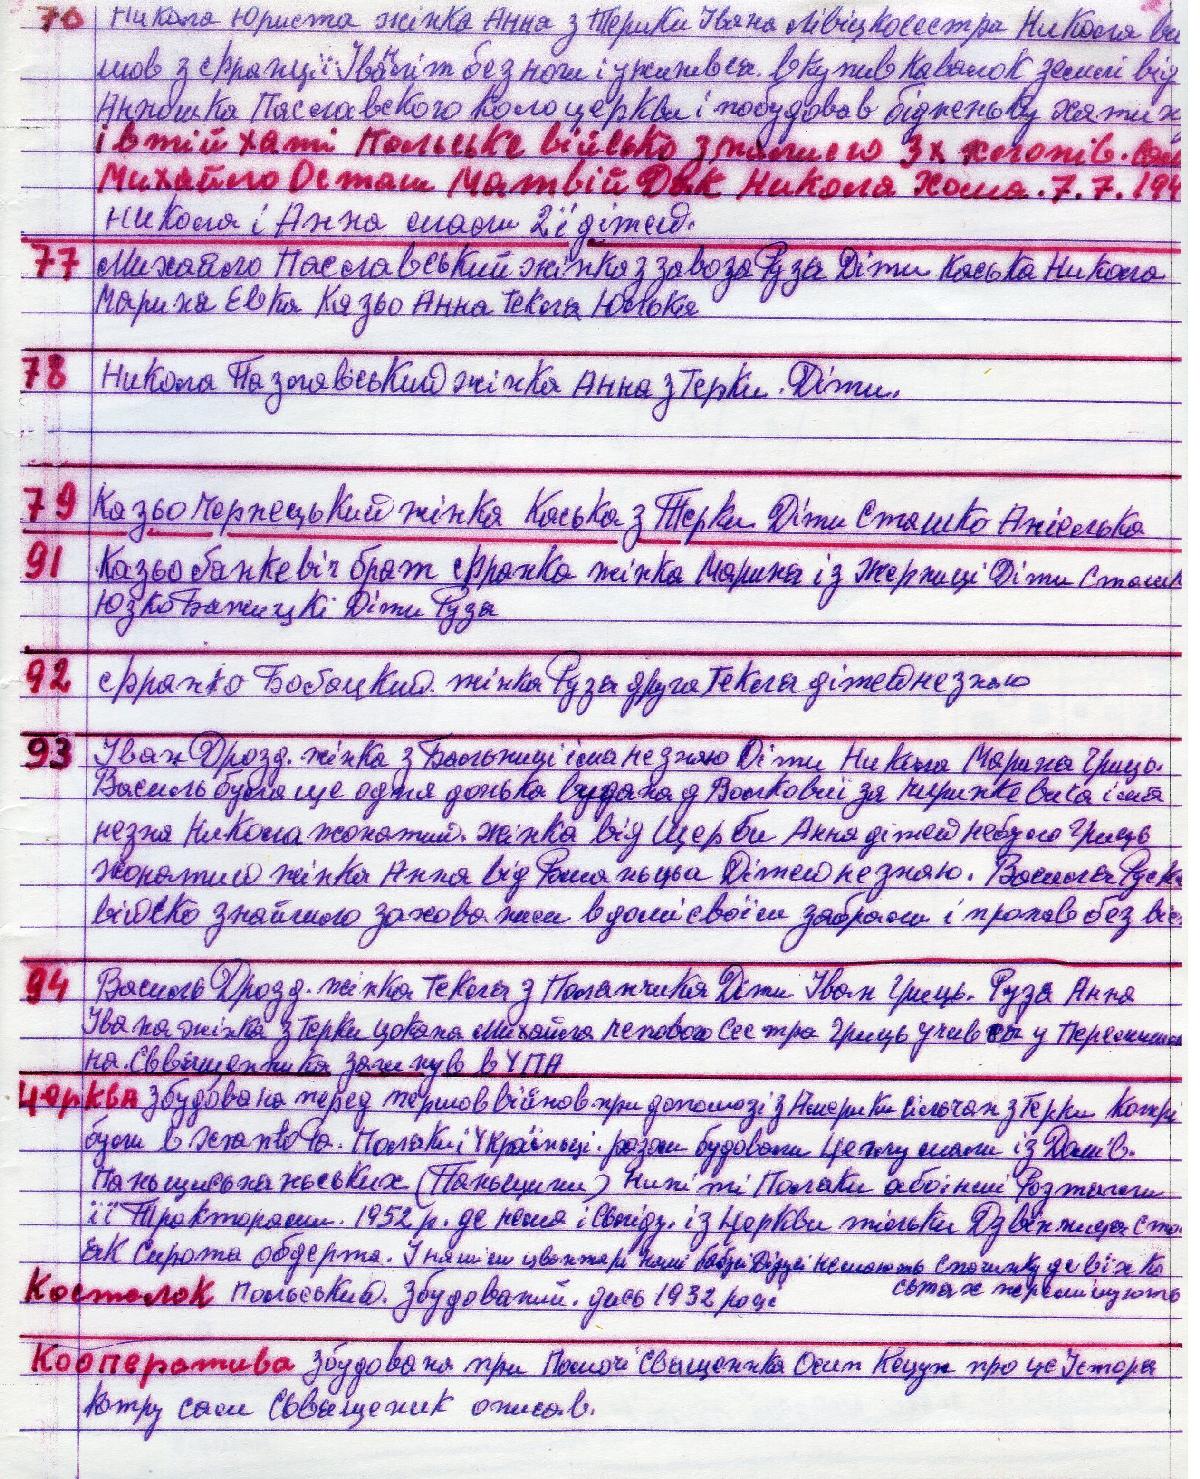 76 Никола Юриста жінка Анна з Терики Івана Лівіцко сестра Никола
з Франції Іван без ноги і уженився. вкупив кавалок землі від
Антошка Паславского коло церкви і побудовав бідненьку хатинк
і в тій хаті Польське військо зпалило 3х хлопів.
Михайло Осташ Матвій Двк Никола Хома. 7. 7. 194
Никола і Анна мали 2ї дітей.
77 Михайло Пасславський жінка з завоза Руза Діти Каська Никола
Марина Евка Казьо Анна Текла Юлька
78 Никола Пазславіський жінка Анна з Терки. Діти.
79 Казьо Чернецький жінка Каська з Терки Діти Сташко Анієлька
91 Казьо банкевіч брат Франка жінка Марина із Жерниці Діти
Юзко Бажицкі Діти Руза
92 Франко Бобацкий. жінка Руза друга Текла дітей незнаю
93 Іван Дрозд. жінка з Бальниці імя незнаю Діти Никола Марина Гриць.
Василь була ще одна донька видана д Волковиї за імя
незна Никола жонатий. жінка від Щерби Анна дітей небуло Гриць
жонатий жінка Анна від Діти незнаю. Василя Руск
війско знайшло захова ним в домі своїм забрали і пропав без віс
94 Василь Дрозд. жінка Текла з Поланчика Діти Іван Гриць. Руза Анна
Івана жінка з Терки Цокана Михайла сестра Гриць учив ся у
на. Свєщенника загинув в УПА
Церква Збудована перед першов війнов при допомозі з Америки сільчан з Терки Котрі
були в Поляки і Українці. разом будовали Цеглу мали із Домів.
Паньщизняньських (Паньщини) Нині ті Поляки або інші Розтягли
її Тракторами. 1952 р. де нема і свиду. із Церкви тільки Дзвінниця сто
як Сирота обдерта. І на цвинтарі наші баби Дідусі не мають спочинку де віхко
сьтах
Костелок Польський. Збудований. десь 1932 році
Кооператива Збудована при Помочі Свещенника Осип Кецун про це Істора
Котру сам Свещеник описав.